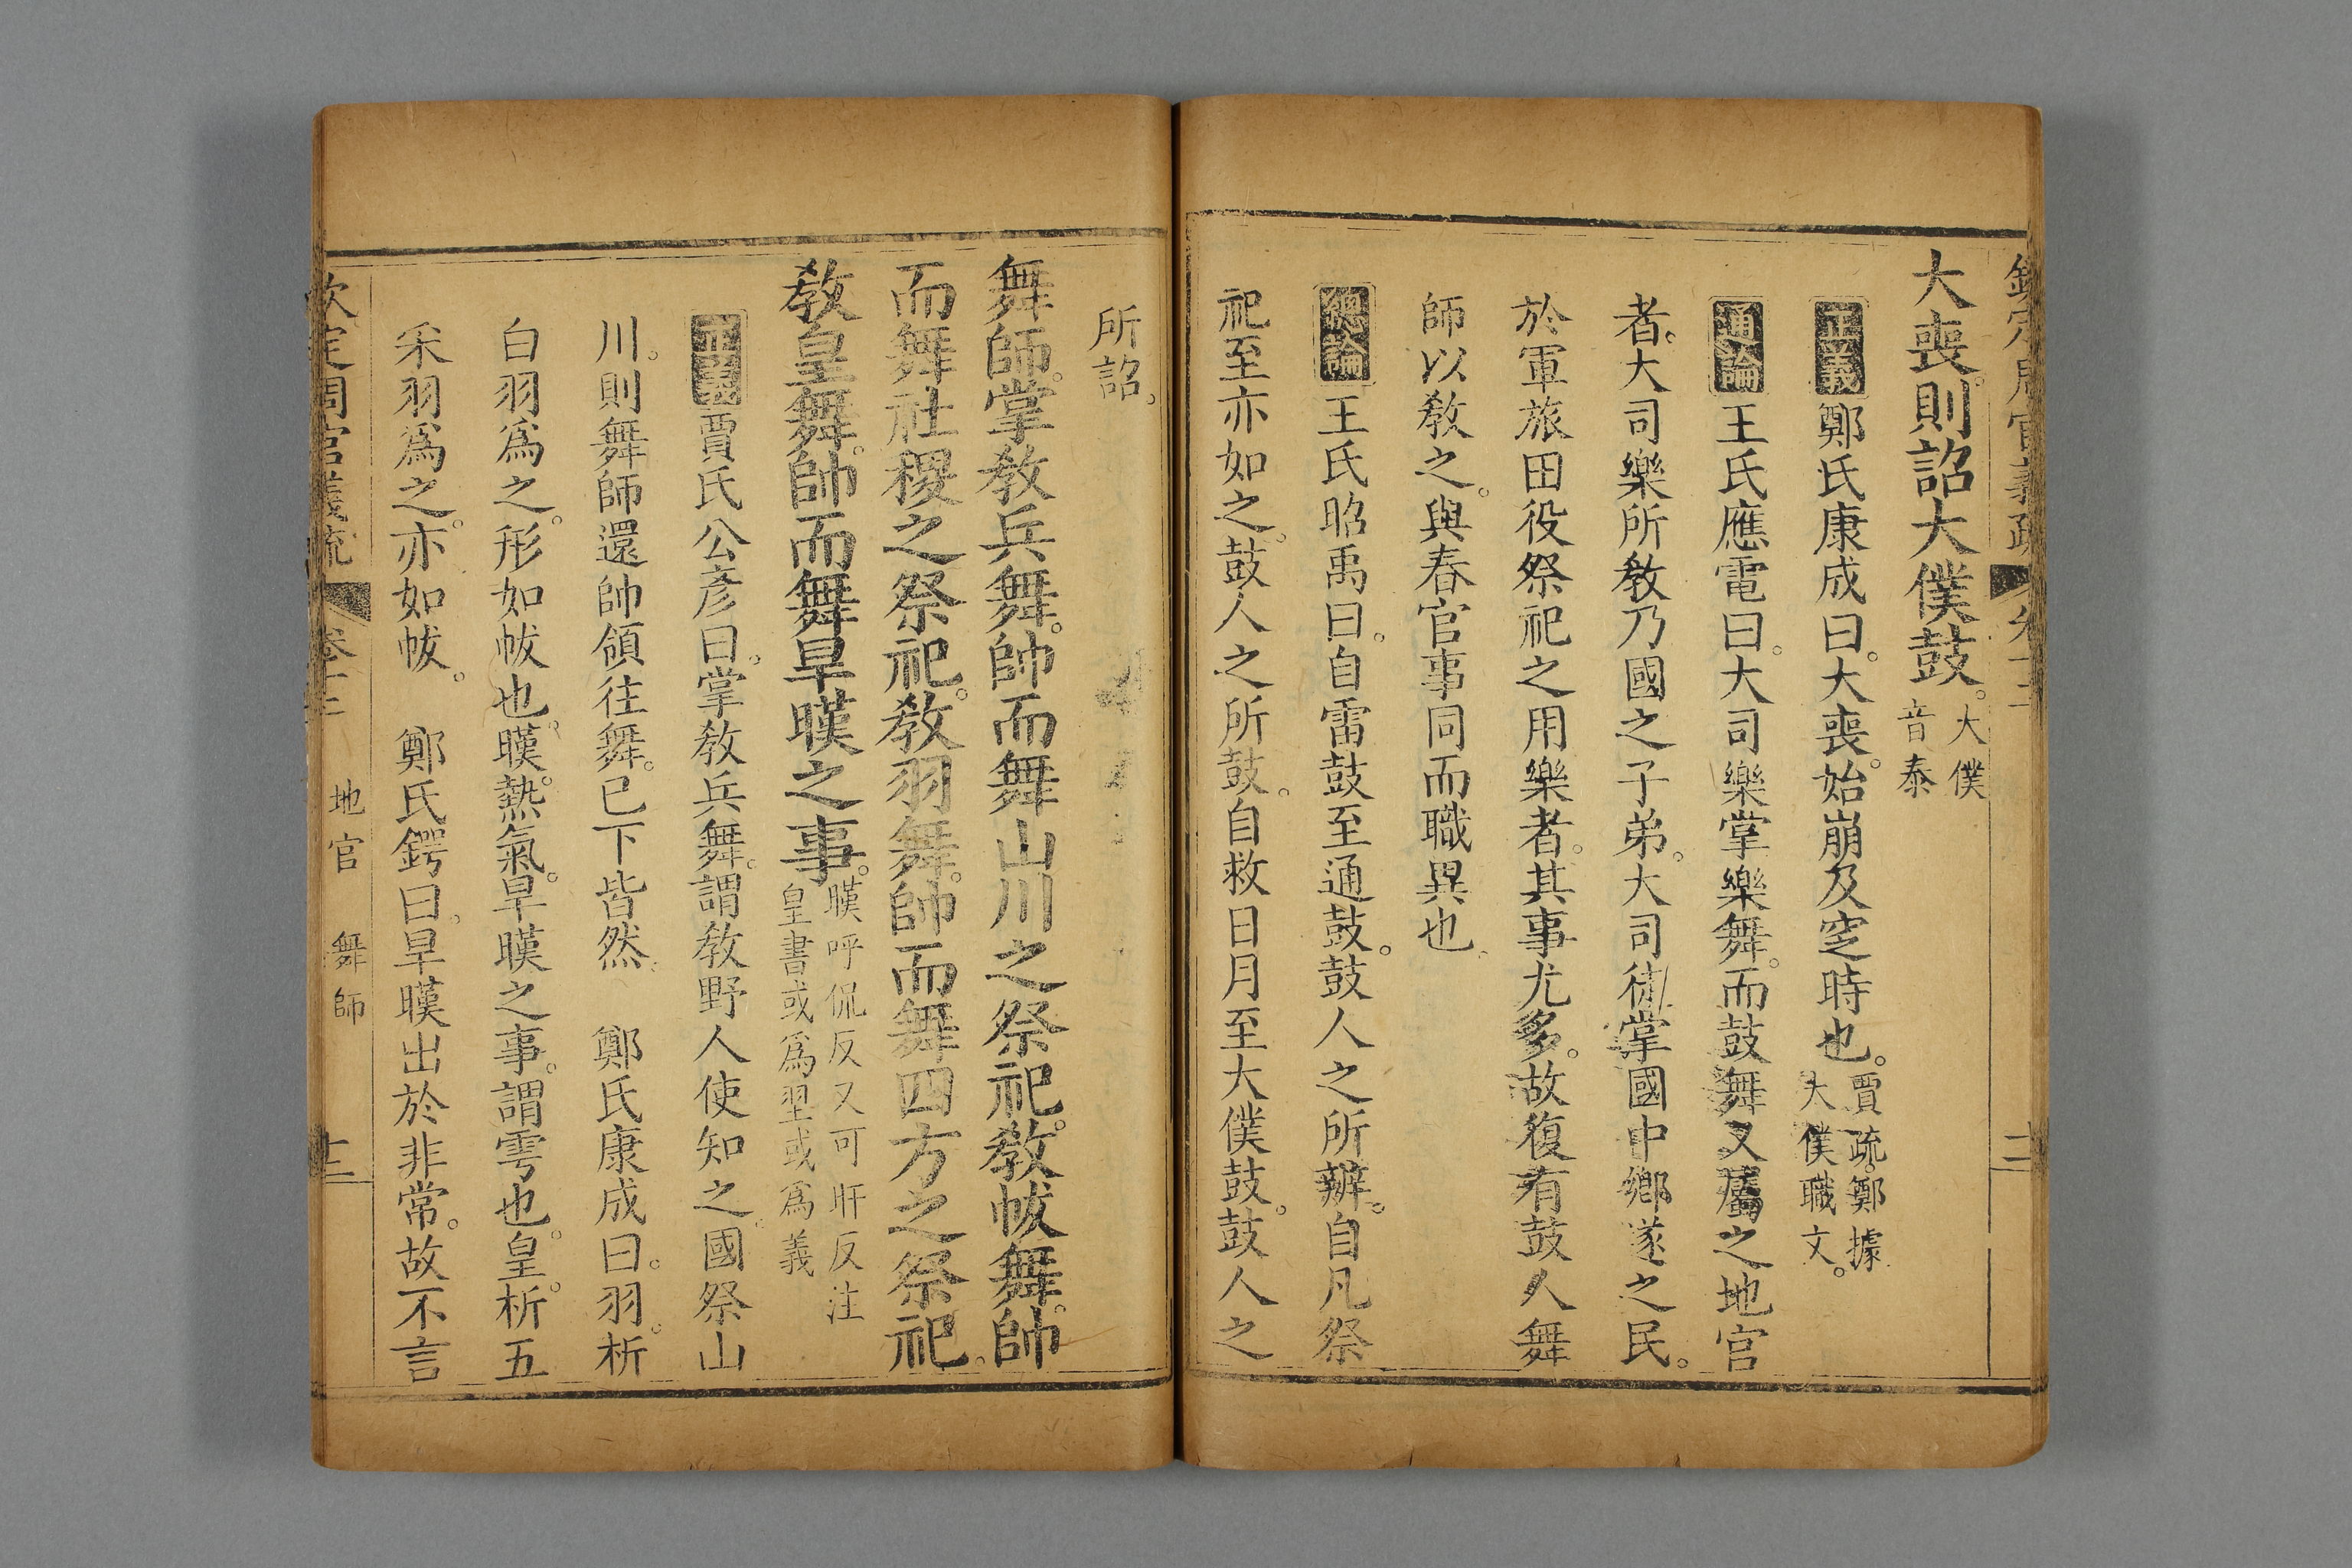 欽定周官義疏 卷十三 十二
大喪。則詔大僕鼓。大僕
音泰
正義鄭氏康成曰。大喪。始崩及窆時也。賈疏。鄭據
大僕職文。
通論王氏應電曰。大司樂掌樂舞。而鼓舞又屬之地官
者。大司樂所敎乃國之子弟。大司徒掌國中鄉遂之民。
於軍旅田役祭祀之用樂者。其事尤多。故復有鼓人舞
師以敎之。與春官事同而職異也。
總論王氏昭禹曰。自雷鼓至通鼓。鼓人之所辨。自凡祭
祀至亦如之。鼓人之所鼓。自救日月至大僕鼓。鼓人之
所詔。
舞師。掌敎兵舞。帥而舞山川之祭祀。敎帗舞。帥
而舞社稷之祭祀。敎羽舞。帥而舞四方之祭祀。
敎皇舞。帥而舞旱暵之事。暵呼侃反又可旰反注
皇書或爲䍿或爲義
正義賈氏公彥曰。掌敎兵舞。謂敎野人使知之。國祭山
川。則舞師還帥領往舞。已下皆然。 鄭氏康成曰。羽。析
白羽爲之。形如帗也。暵。熱氣。旱暵之事。謂雩也。皇。析五
采羽爲之。亦如帗。 鄭氏鍔曰。旱暵出於非常。故不言
欽定周官義疏 卷十三 地官 舞師 十三